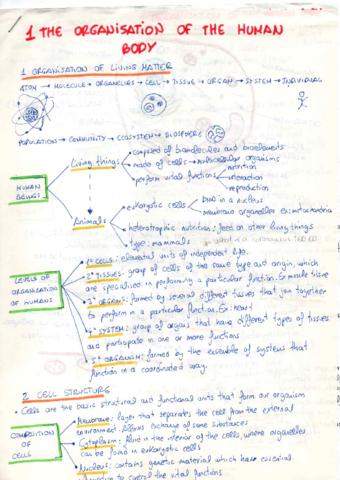 1 THE ORGANISATION OF THE HUMAN
BODY
1 ORGANISATION OF LIVING MATTER
ATOM → MOLECULE → ORGANELLES → CELL → TISSUE → ORGAN → SYSTEM → INDIVIDUAL
POPULATION → COMMUNITY → ECOSYSTEM → BIOSPHERE
HUMAN BEINGS
Living things
composed of biomolecules and bioelements
made of cells → multicellular organisms
perform vital functions
nutrition
interaction
reproduction
Animals
eukaryotic cells
DNA in a nucleus
membrane organelles Ex: mitochondria
heterotrophic nutrition: feed on other living things
type: mammals
LEVELS OF
ORGANISATION
OF HUMANS
1º CELLS: elemental units of independent life.
2º TISSUES: group of cells of the same type and origin, which
are specialised in performing a particular function. Ex: muscle tissue
3º ORGAN: formed by several different tissues that join together
to perform in a particular function. Ex: heart
4º SYSTEM: group of organs that have different types of tissues
and participate in one or more functions
5º ORGANISM: formed by the ensemble of systems that
function in a coordinated way.
2 CELL STRUCTURE
• Cells are the basic structural and functional units that form an organism
COMPOSITION
OF
CELLS
Membrane: layer that separates the cell from the external
environment. Allows exchange of some substances
Cytoplasm: fluid in the interior of the cells, where organelles
can be found in eukaryotic cells
Nucleus: contains genetic material which have essential
function to control the vital functions